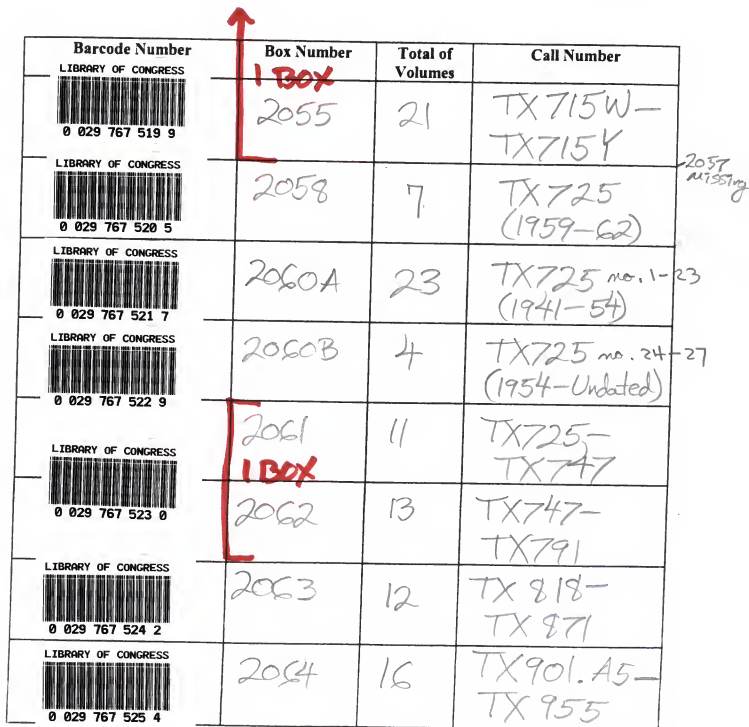 Barcode Number Box Number Total of Volumes Call Number
LIBRARY OF CONGRESS
0 029 767 519 9
1 BOX
2055 21 TX 715W–
TX715Y
2057
missing
LIBRARY OF CONGRESS
0 029 767 520 5
2058 7 TX 725
(1959–62)
LIBRARY OF CONGRESS
0 029 767 521 7
2060A 23 TX725 no. 1–23
(1941–54)
LIBRARY OF CONGRESS
0 029 767 522 9
2060B 4 TX725 no. 24–27
(1954–Undated)
LIBRARY OF CONGRESS
0 029 767 523 0
2061 11 TX725–
TX747
1 BOX
2062 13 TX747–
TX791
LIBRARY OF CONGRESS
0 029 767 524 2
2063 12 TX 818–
TX 871
LIBRARY OF CONGRESS
0 029 767 525 4
2064 16 TX901.A5–
TX 955